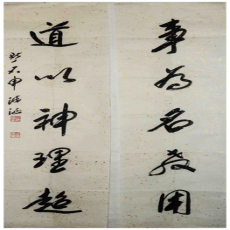 事为名教用
道以神理超